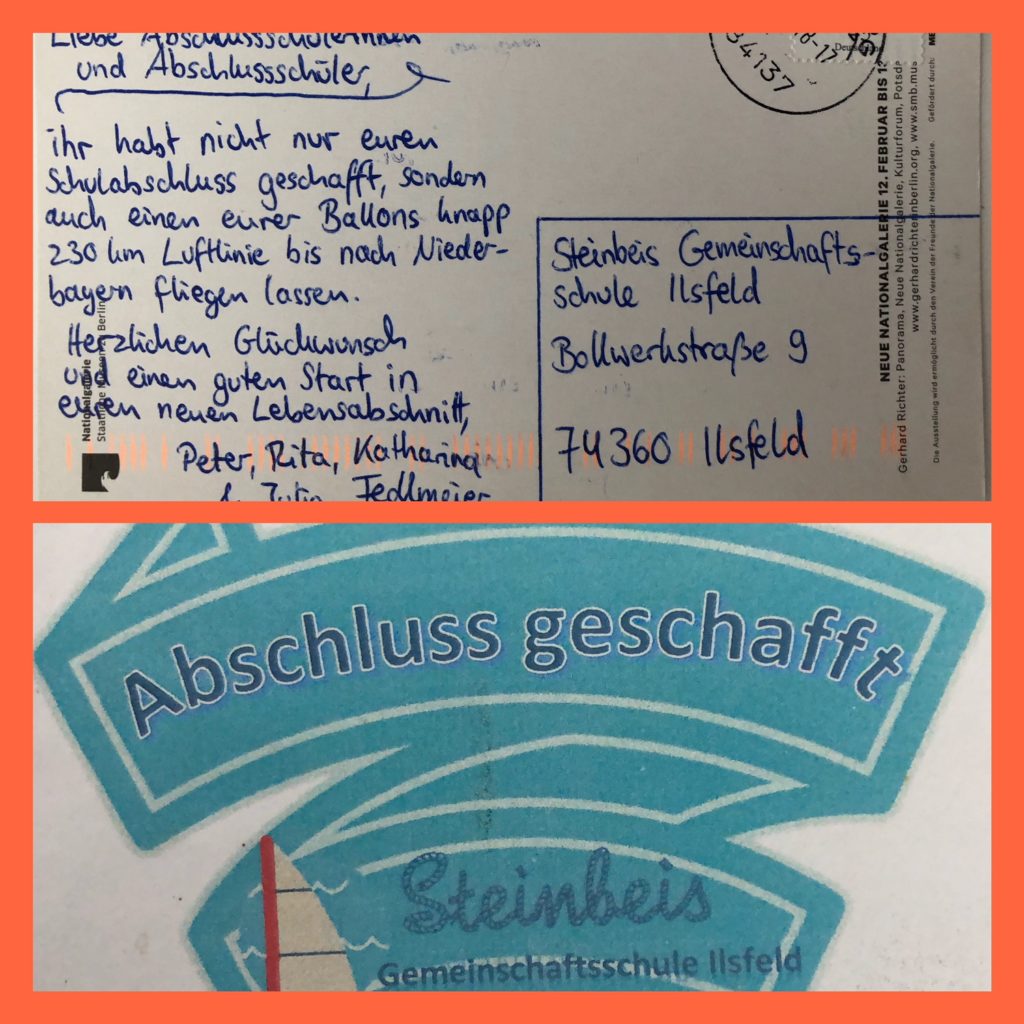 Liebe Abschlussschülerinnen
und Abschlussschüler,
ihr habt nicht nur euren
Schulabschluss geschafft, sondern
auch einen eurer Ballons knapp
230 km Luftlinie bis nach Nieder-
bayern fliegen lassen.
Herzlichen Glückwunsch
und einen guten Start in
euren neuen Lebensabschnitt,
Peter, Rita, Katharina
& Julia Fedlmeier
Nationalgalerie
Staatliche Museen Berlin
34137
Deutschland
Steinbeis Gemeinschafts-
schule Ilsfeld
Bollwerkstraße 9
74360 Ilsfeld
NEUE NATIONALGALERIE 12. FEBRUAR BIS
Gerhard Richter: Panorama, Neue Nationalgalerie, Kulturforum, Potsda
www.gerhardrichterinberlin.org, www.smb.mus
Die Ausstellung wird ermöglicht durch den Verein der Freunde der Nationalgalerie. Gefördert durch:
Abschluss geschafft
Steinbeis
Gemeinschaftsschule Ilsfeld